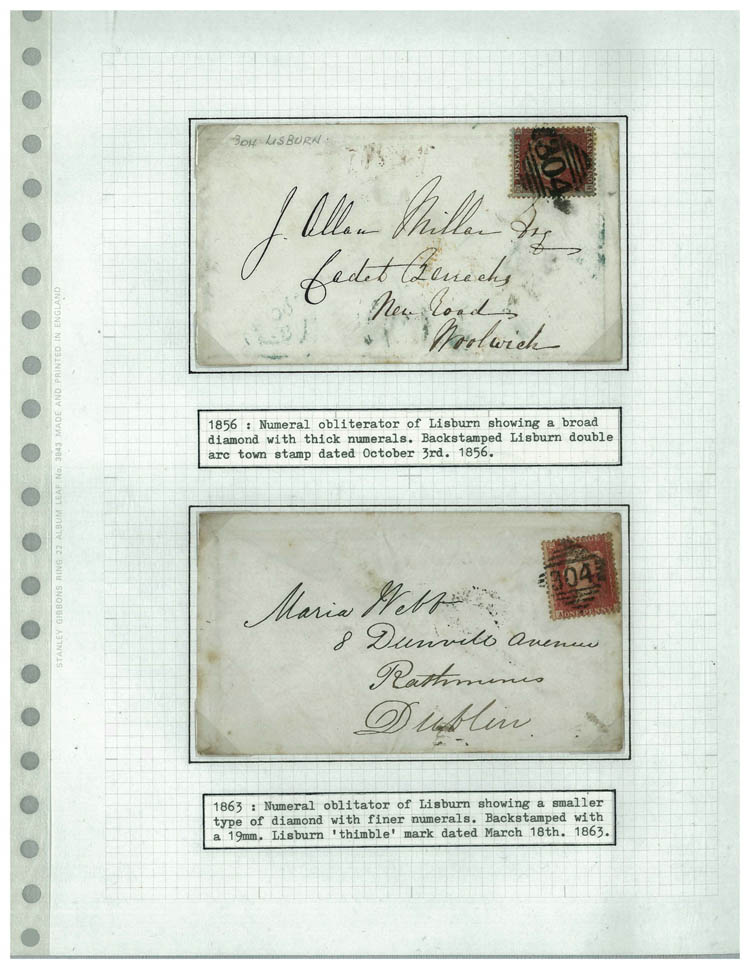 304 LISBURN
304
J. Allan Millar Esq
Cadet Barracks
New Road
Woolwich
1856 : Numeral obliterator of Lisburn showing a broad
diamond with thick numerals. Backstamped Lisburn double
arc town stamp dated October 3rd. 1856.
304
ONE PENNY
Maria Webb
8 Dunvill Avenue
Rathmines
Dublin
1863 : Numeral oblitator of Lisburn showing a smaller
type of diamond with finer numerals. Backstamped with
a 19mm. Lisburn 'thimble' mark dated March 18th. 1863.
STANLEY GIBBONS RING 22 ALBUM LEAF No. 3843 MADE AND PRINTED IN ENGLAND